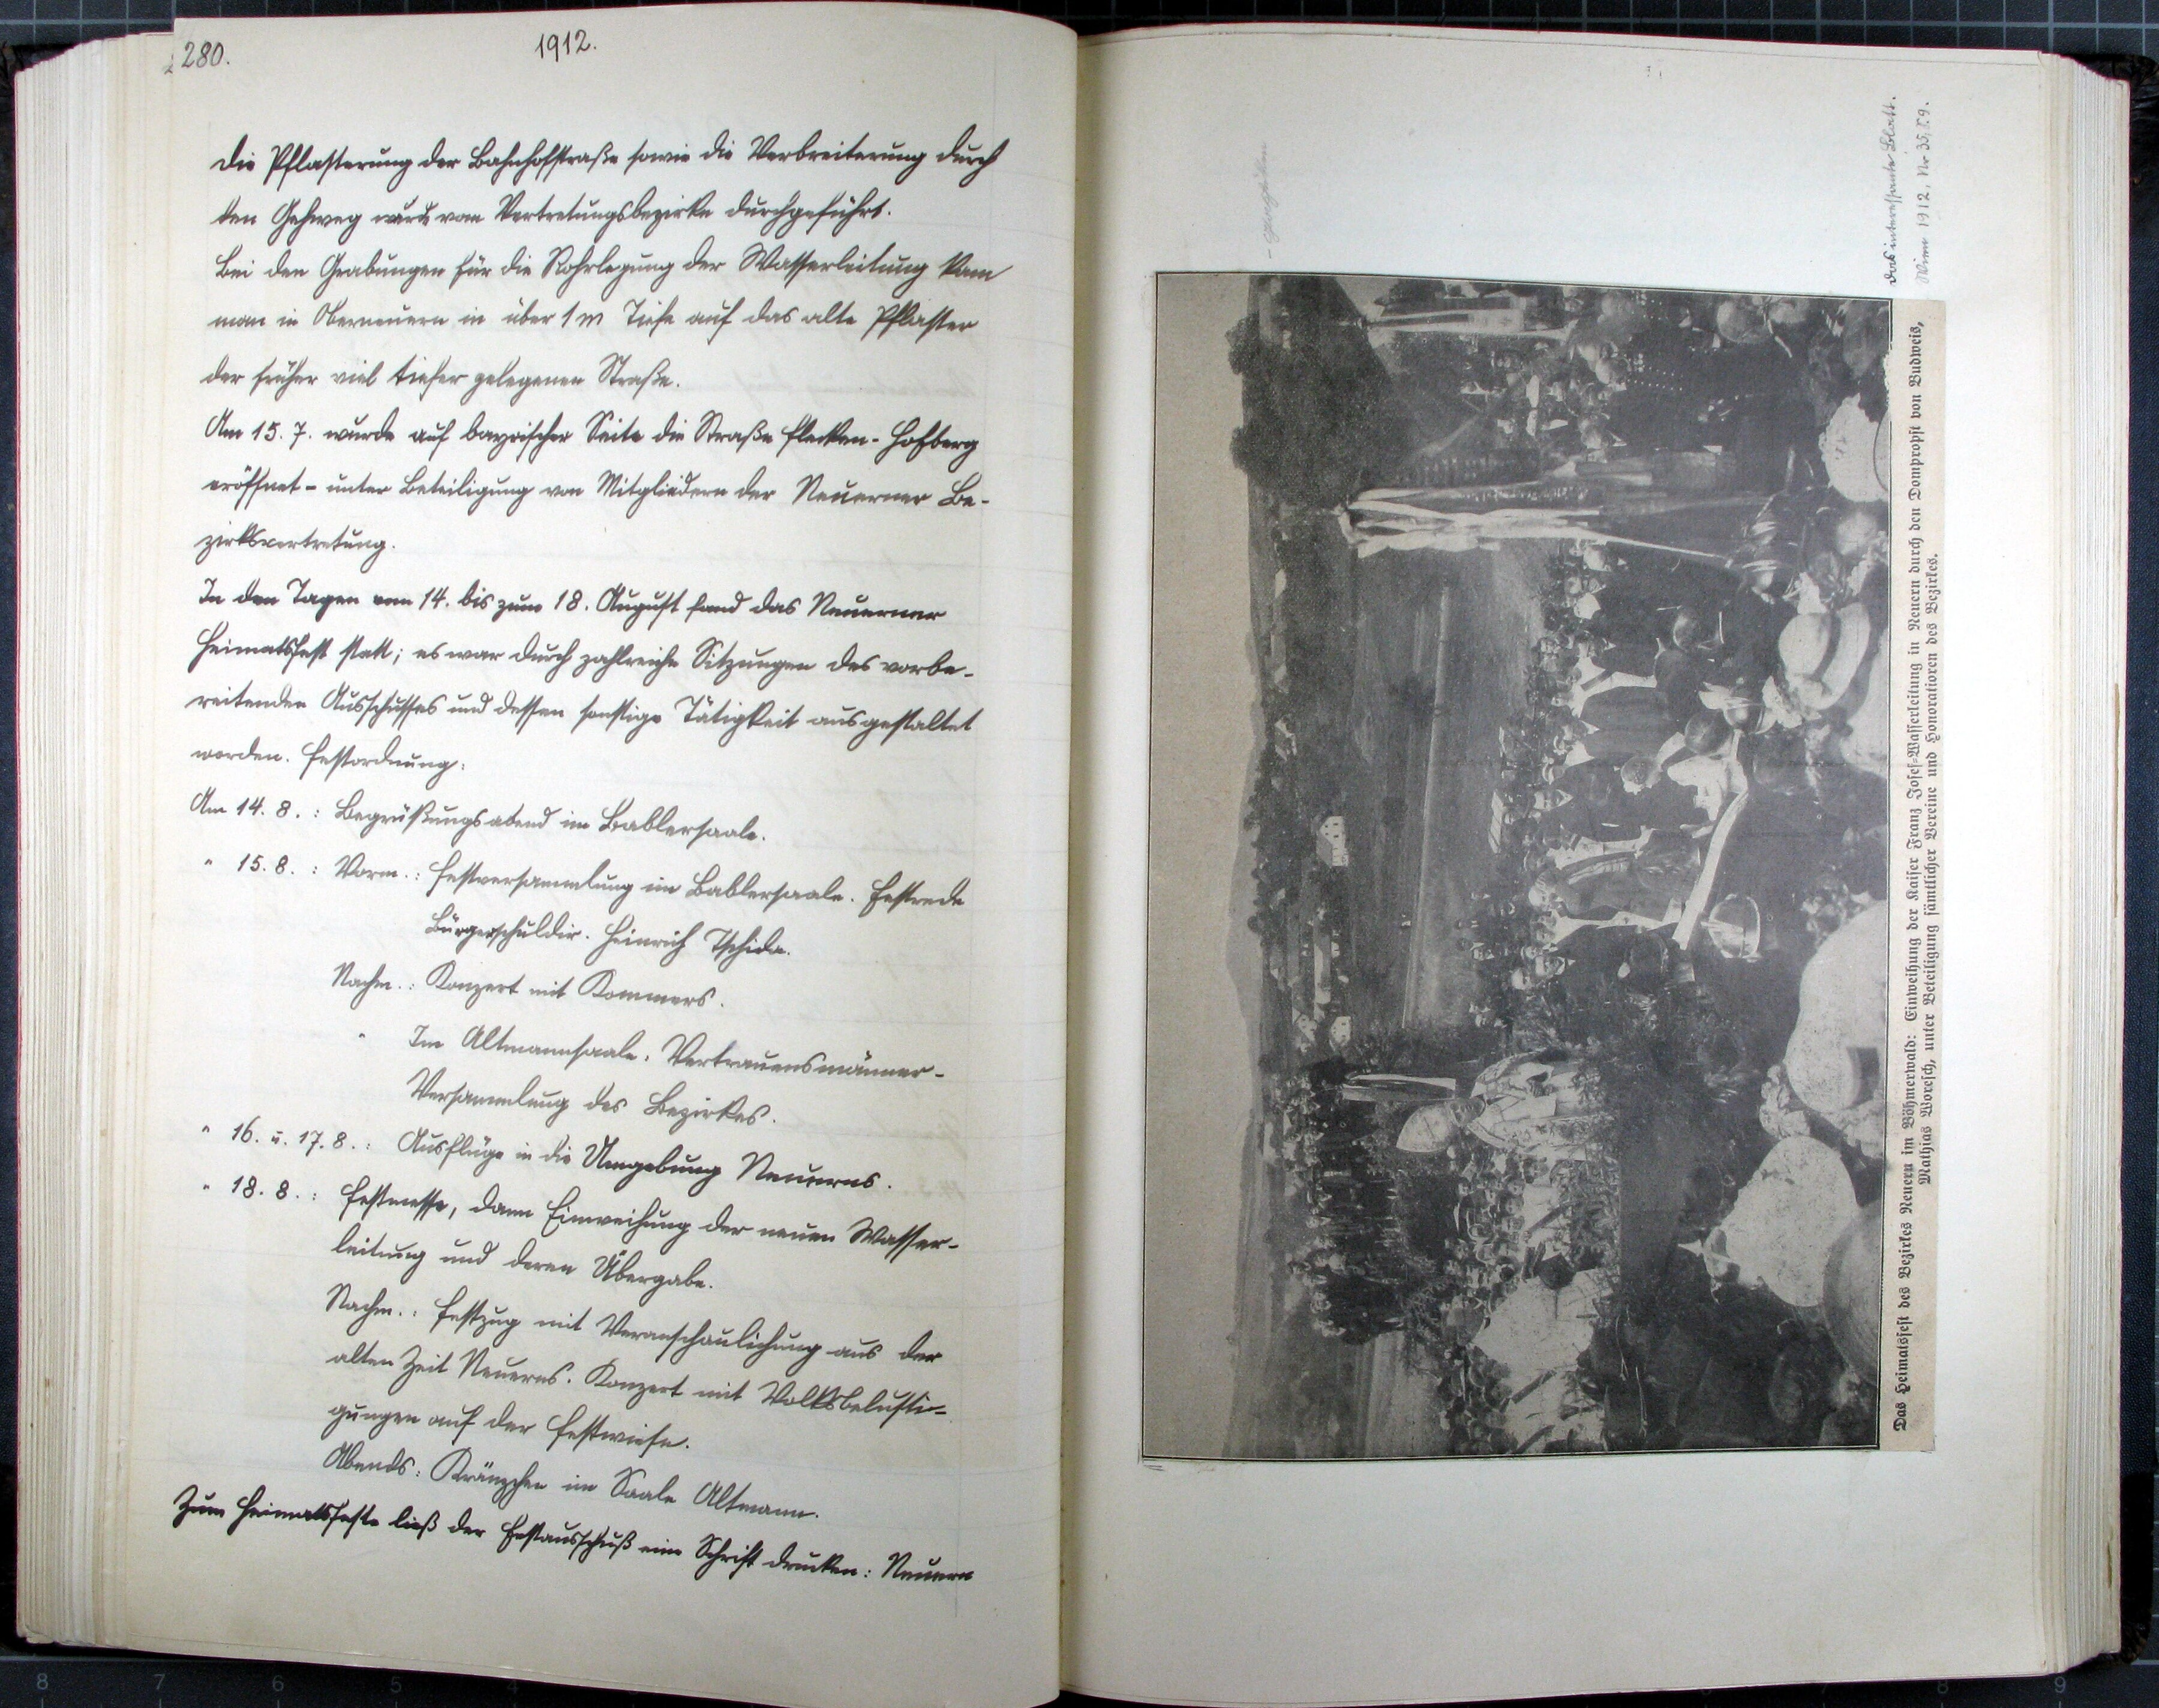 280.
1912.
Die Pflasterung der Bahnhofstraße sowie die Verbreiterung durch
den Gehweg wurde vom Vertretungsbezirke durchgeführt.
Bei den Grabungen für die Rohrlegung der Wasserleitung kam
man in Oberneuern in über 1 m Tiefe auf das alte Pflaster
der früher viel tiefer gelegenen Straße.
Am 15. 7. wurde auf bayrischer Seite die Straße Flecken-Hofberg
eröffnet - unter Beteiligung von Mitgliedern der Neuerner Be-
zirksvertretung.
In den Tagen vom 14. bis zum 18. August fand das Neuerner
Heimatsfest statt; es war durch zahlreiche Sitzungen des vorbe-
reitenden Ausschusses und dessen sonstige Tätigkeit ausgestaltet
worden. Festordnung:
Am 14. 8. : Begrüßungsabend im Bablersaale.
" 15. 8. : Vorm. : Festversammlung im Bablersaale. Festrede
Bürgerschuldir. Heinrich Tschida.
Nachm. : Konzert mit Kommers.
" Im Altmannsaale. Vertrauensmänner-
Versammlung des Bezirkes.
" 16. u. 17. 8. : Ausflüge in die Umgebung Neuerns.
" 18. 8. : Festmesse, dann Einweihung der neuen Wasser-
leitung und deren Übergabe.
Nachm. : Festzug mit Veranschaulichung aus der
alten Zeit Neuerns. Konzert mit Volksbelusti-
gungen auf der Festwiese.
Abends: Kränzchen im Saale Altmann.
Zum Heimatsfeste ließ der Festausschuß eine Schrift drucken: Neuern
Das interessante Blatt.
Wien 1912, Nr 35, S. 9.
Das Heimatsfest des Bezirkes Neuern im Böhmerwald: Einweihung der Kaiser Franz Josef-Wasserleitung in Neuern durch den Dompropst von Budweis,
Mathias Woresch, unter Beteiligung sämtlicher Vereine und Honoratioren des Bezirkes.
8 7 6 5 4
8 9